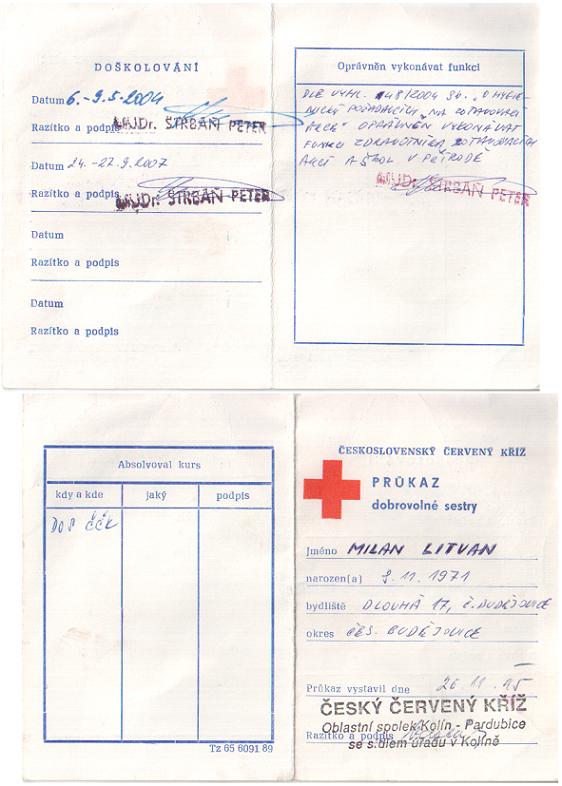 DOŠKOLOVÁNÍ
Datum 6.-9.5.2004
Razítko a podpis MUDr. ŠTRBÁŇ PETER
Datum 24.-27.9.2007
Razítko a podpis MUDr. ŠTRBÁŇ PETER
Datum
Razítko a podpis
Datum
Razítko a podpis
Oprávněn vykonávat funkci
DLE VYHL. 148/2004 Sb. "O HYGIE-
POŽADAVCÍCH NA ZOTAVOVACÍ
AKCE" OPRÁVNĚN VYKONÁVAT
FUNKCI ZDRAVOTNÍKA ZOTAVOVACÍCH
AKCÍ A ŠKOL V PŘÍRODĚ
MUDr. ŠTRBÁŇ PETER
Absolvoval kurs
kdy a kde jaký podpis
ČČK
Tz 65 6091 89
ČESKOSLOVENSKÝ ČERVENÝ KŘÍŽ
PRŮKAZ
dobrovolné sestry
Jméno MILAN LITVAN
narozen(a) 9.11.1971
bydliště DLOUHÁ 17, Č. BUDĚJOVICE
okres ČES. BUDĚJOVICE
Průkaz vystavil dne 26.11.95
ČESKÝ ČERVENÝ KŘÍŽ
Oblastní spolek Kolín - Pardubice
Razítko a podpis
se sídlem úřadu v Kolíně